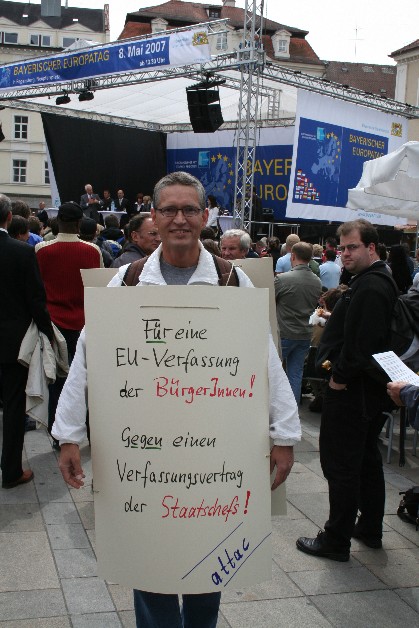 BAYERISCHER EUROPATAG
8. Mai 2007
BAYERISCHER
EUROPATAG
BAYER
EUROPA
Für eine
EU-Verfassung
der BürgerInnen!
Gegen einen
Verfassungsvertrag
der Staatschefs!
attac